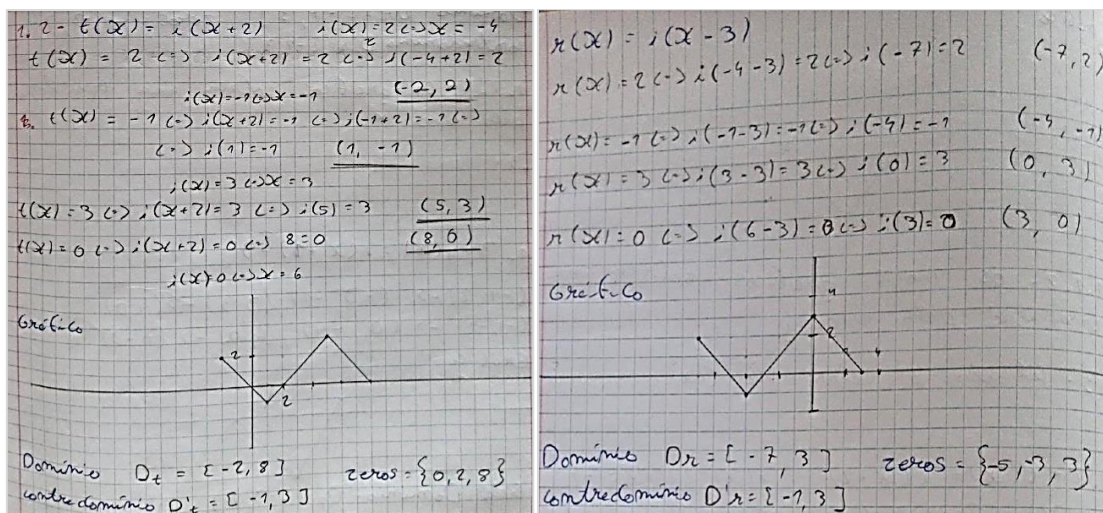 1. 2 - t(x) = i(x+2) i(x)=2 (=) x = -4
t(x) = 2 (=) i(x+2) = 2 (=) i(-4+2)=2
i(x)=-1 (=) x=-1 (-2, 2)
t(x) = -1 (=) i(x+2)=-1 (=) i(-1+2)=-1 (=)
(=) i(1)=-1 (1, -1)
i(x)=3 (=) x=3
t(x)=3 (=) i(x+2)=3 (=) i(5)=3 (5,3)
t(x)=0 (=) i(x+2)=0 (=) 8=0 (8,0)
i(x)=0 (=) x=6
Gráfico
2
2
Domínio Dt = [-2,8] zeros={0,2,8}
contradomínio D't = [-1,3]
r(x) = i(x-3)
r(x)=2 (=) i(-4-3)=2 (=) i(-7)=2 (-7,2)
r(x)=-1 (=) i(-1-3)=-1 (=) i(-4)=-1 (-4,-1)
r(x)=3 (=) i(3-3)=3 (=) i(0)=3 (0,3)
r(x)=0 (=) i(6-3)=0 (=) i(3)=0 (3,0)
Gráfico
4
2
4
Domínio Dr = [-7,3] zeros = {-5,-3,3}
contradomínio D'r = [-1,3]